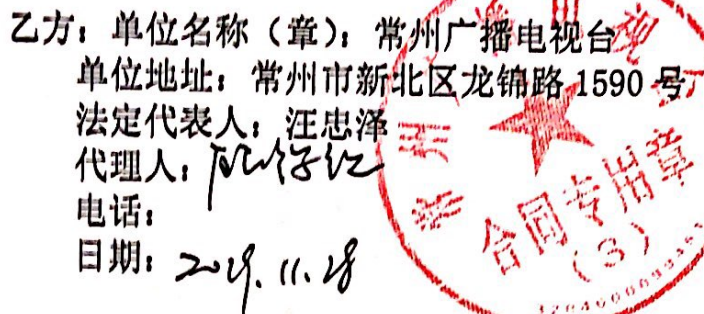 乙方：单位名称（章）：常州广播电视台
单位地址：常州市新北区龙锦路 1590 号
法定代表人：汪忠泽
代理人：
电话：
日期：2019.11.28
合同专用章
（3）